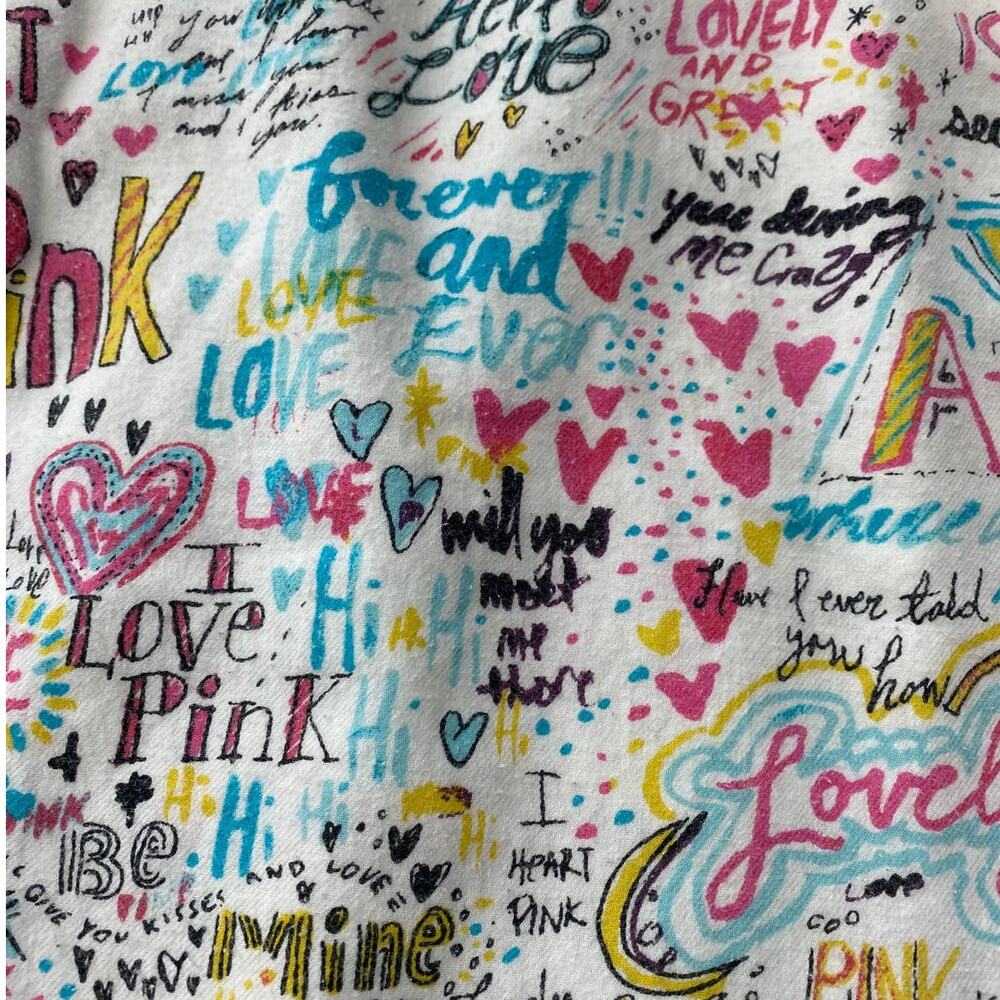 LOVE
LOVELY
AND
GREAT
you
and I love
you
I miss
kiss
and
you.
LOVE
forever!!!
and
Ever
LOVE
LOVE
LOVE
Pink
your driving
me Crazy!
A
LOVE
will you
meet
me
there
where
Have I ever told
you how
Love
Love
I
Love
Pink
Hi
Hi
Hi
Hi
Hi
Hi
Hi
Hi
Hi
Lovel
I
HEART
PINK
Be
GIVE YOU KISSES
AND LOVE
Mine
Love
PINK